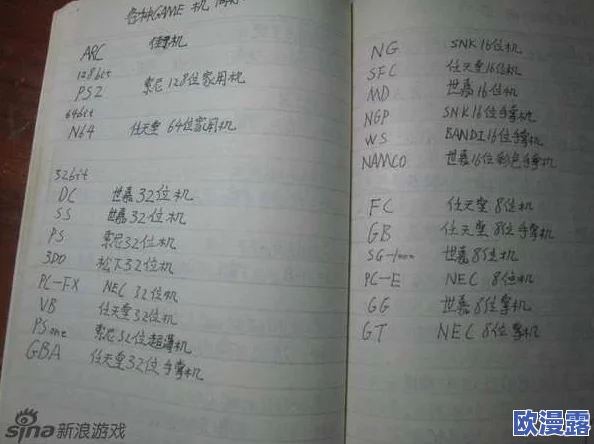 各种GAME 机 简称
ARC 街机
128bit
PS2 索尼128位家用机
64bit
N64 任天堂 64位家用机
32bit
DC 世嘉32位机
SS 世嘉32位机
PS 索尼32位机
3DO 松下32位机
PC-FX NEC 32位机
VB 任天堂32位机
PSone 索尼32位超薄机
GBA 任天堂32位手掌机
NG SNK16位机
SFC 任天堂16位机
MD 世嘉16位机
NGP SNK16位手掌机
WS BANDI16位手掌机
NAMCO 世嘉16位彩色手掌机
FC 任天堂8位机
GB 任天堂8位手掌机
SG-1000 世嘉8位机
PC-E NEC 8位机
GG 世嘉8位掌机
GT NEC 8位掌机
sina新浪游戏
欧漫露